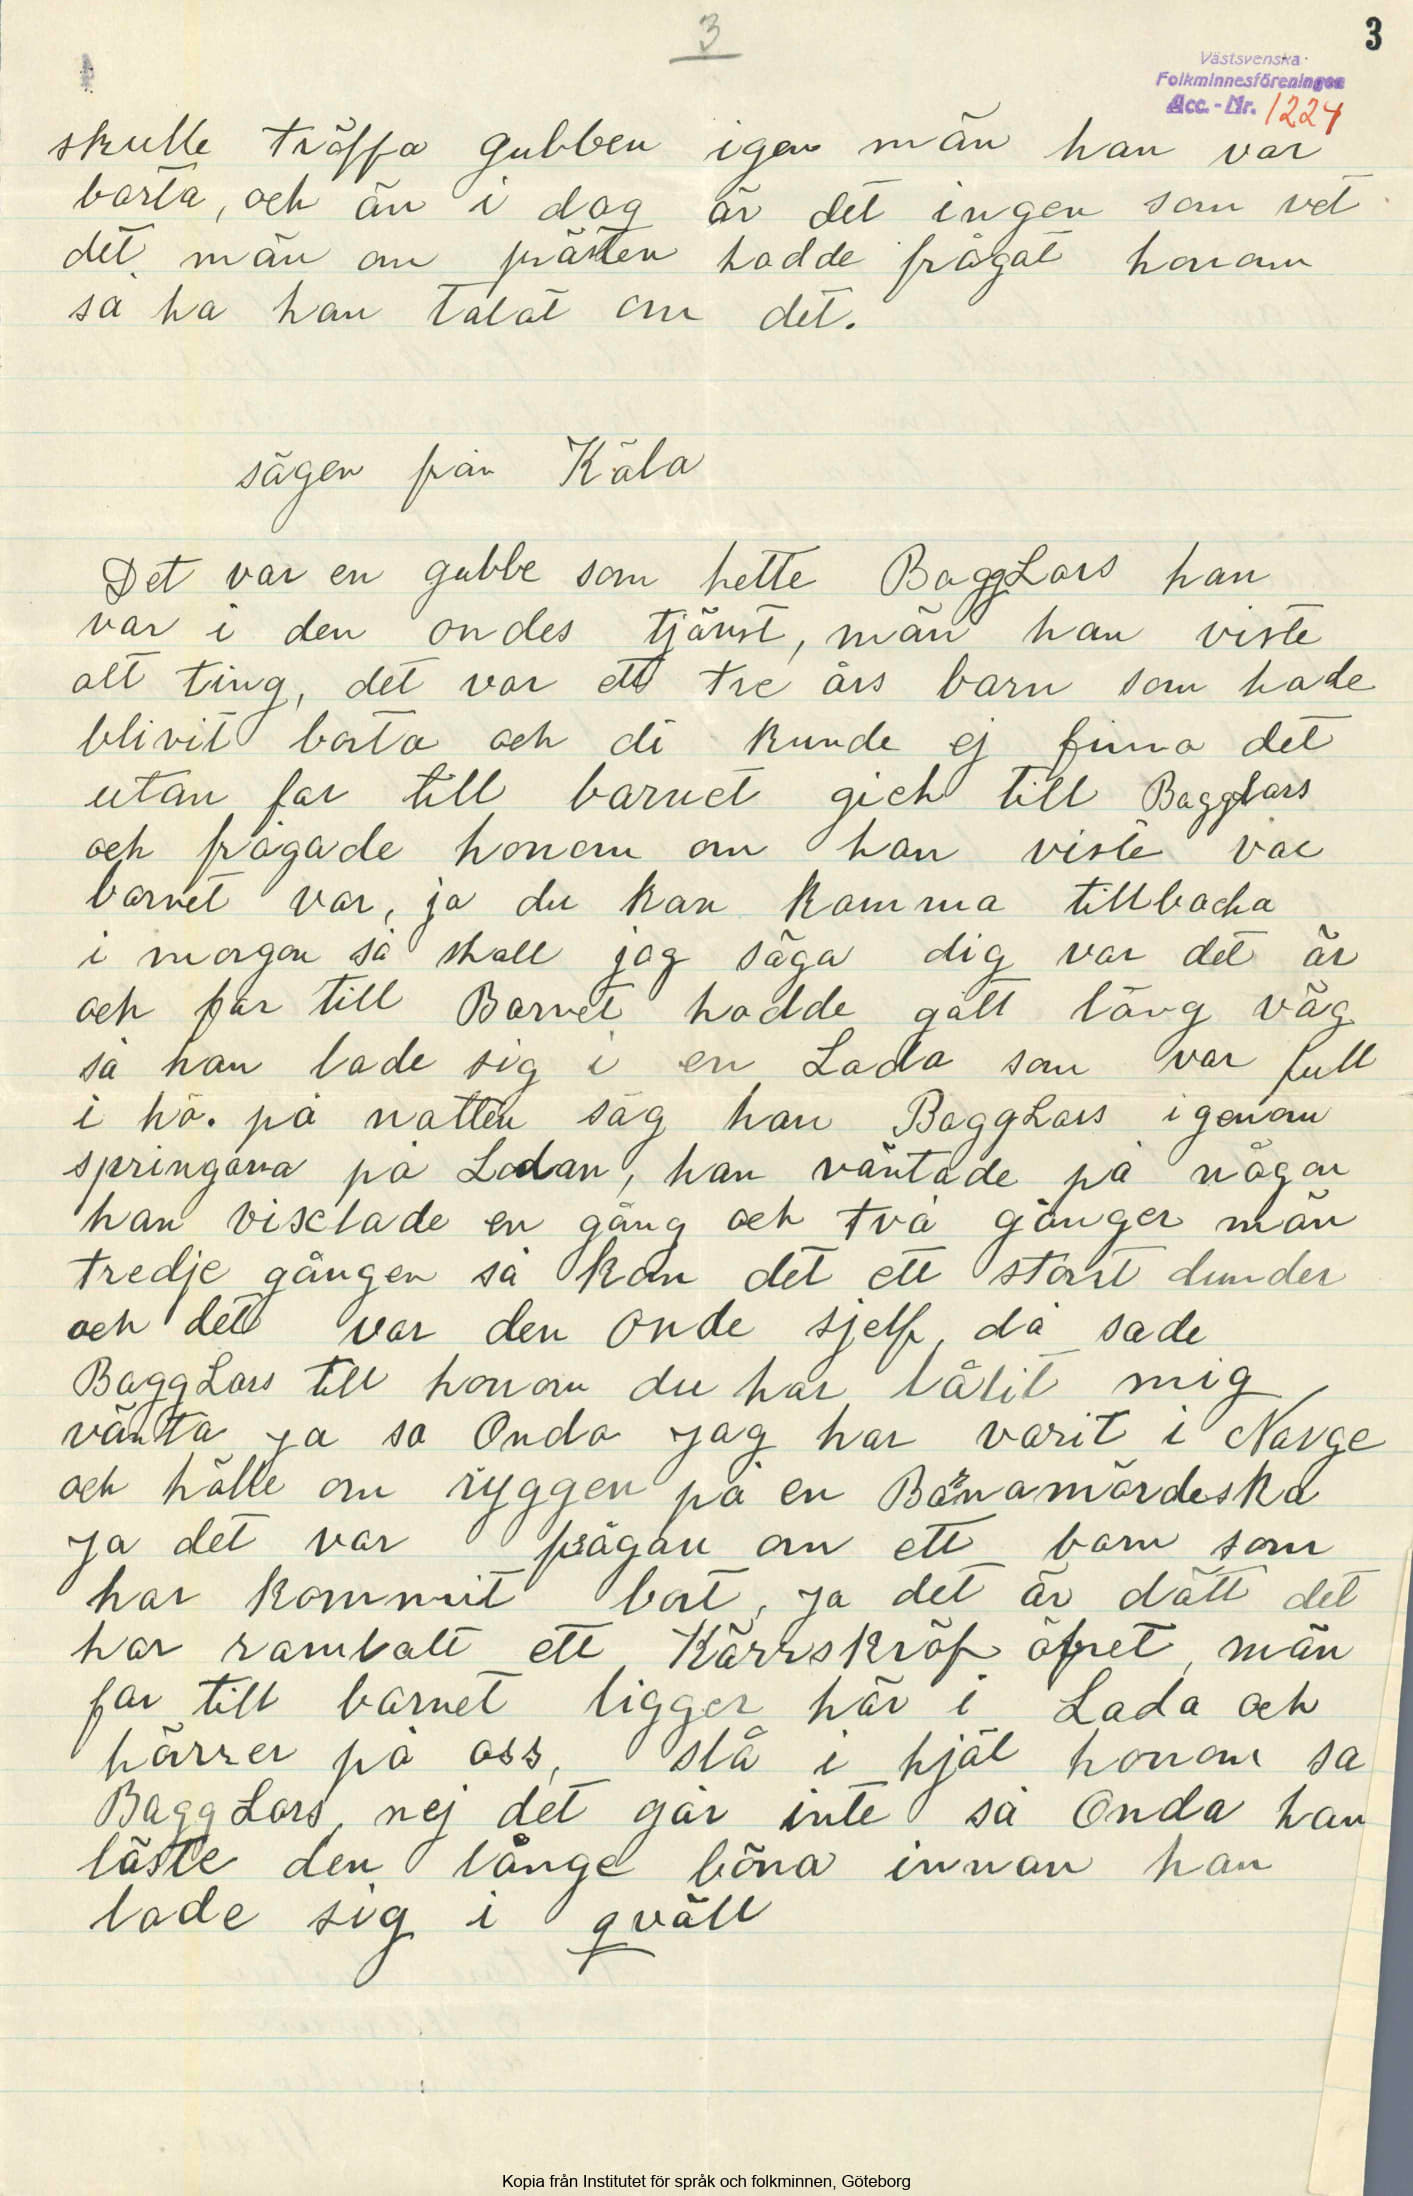 3
3
Västsvenska
Folkminnesföreningen
Acc.-Nr. 1224
skulle träffa gubben igen män han var
borta, och än i dag är det ingen som vet
det män om prästen hadde frågat honom
så ha han talat om det.
sägen från Käla
Det var en gubbe som hette BaggLars han
var i den ondes tjänst, män han viste
alt ting, det var ett tre års barn som hade
blivit borta och di kunde ej finna det
utan far till barnet gick till Bagglars
och frågade honom om han viste var
barnet var, ja du kan komma tillbacka
i morgon så skall jag säga dig var det är
och far till Barnet hadde gått lång väg
så han lade sig i en Lada som var full
i hö. på natten såg han BaggLars igenom
springana på Ladan, han väntade på någon
han visclade en gång och två gånger män
tredje gången så kom det ett stort dunder
och det var den onde sjelf, då sade
BaggLars till honom du har låtit mig
vänta ja sa Onda jag har varit i Norge
och hålle om ryggen på en Barnamördeska
ja det var frågan om ett barn som
har kommit bort, ja det är dätt det
har ramlatt ett Kärrskröf öfvet, män
far till barnet ligger här i Lada och
hörrer på oss, slå i hjäl honom sa
BaggLars, nej det går inte så Onda han
läste den långe böna innan han
lade sig i qväll
Kopia från Institutet för språk och folkminnen, Göteborg